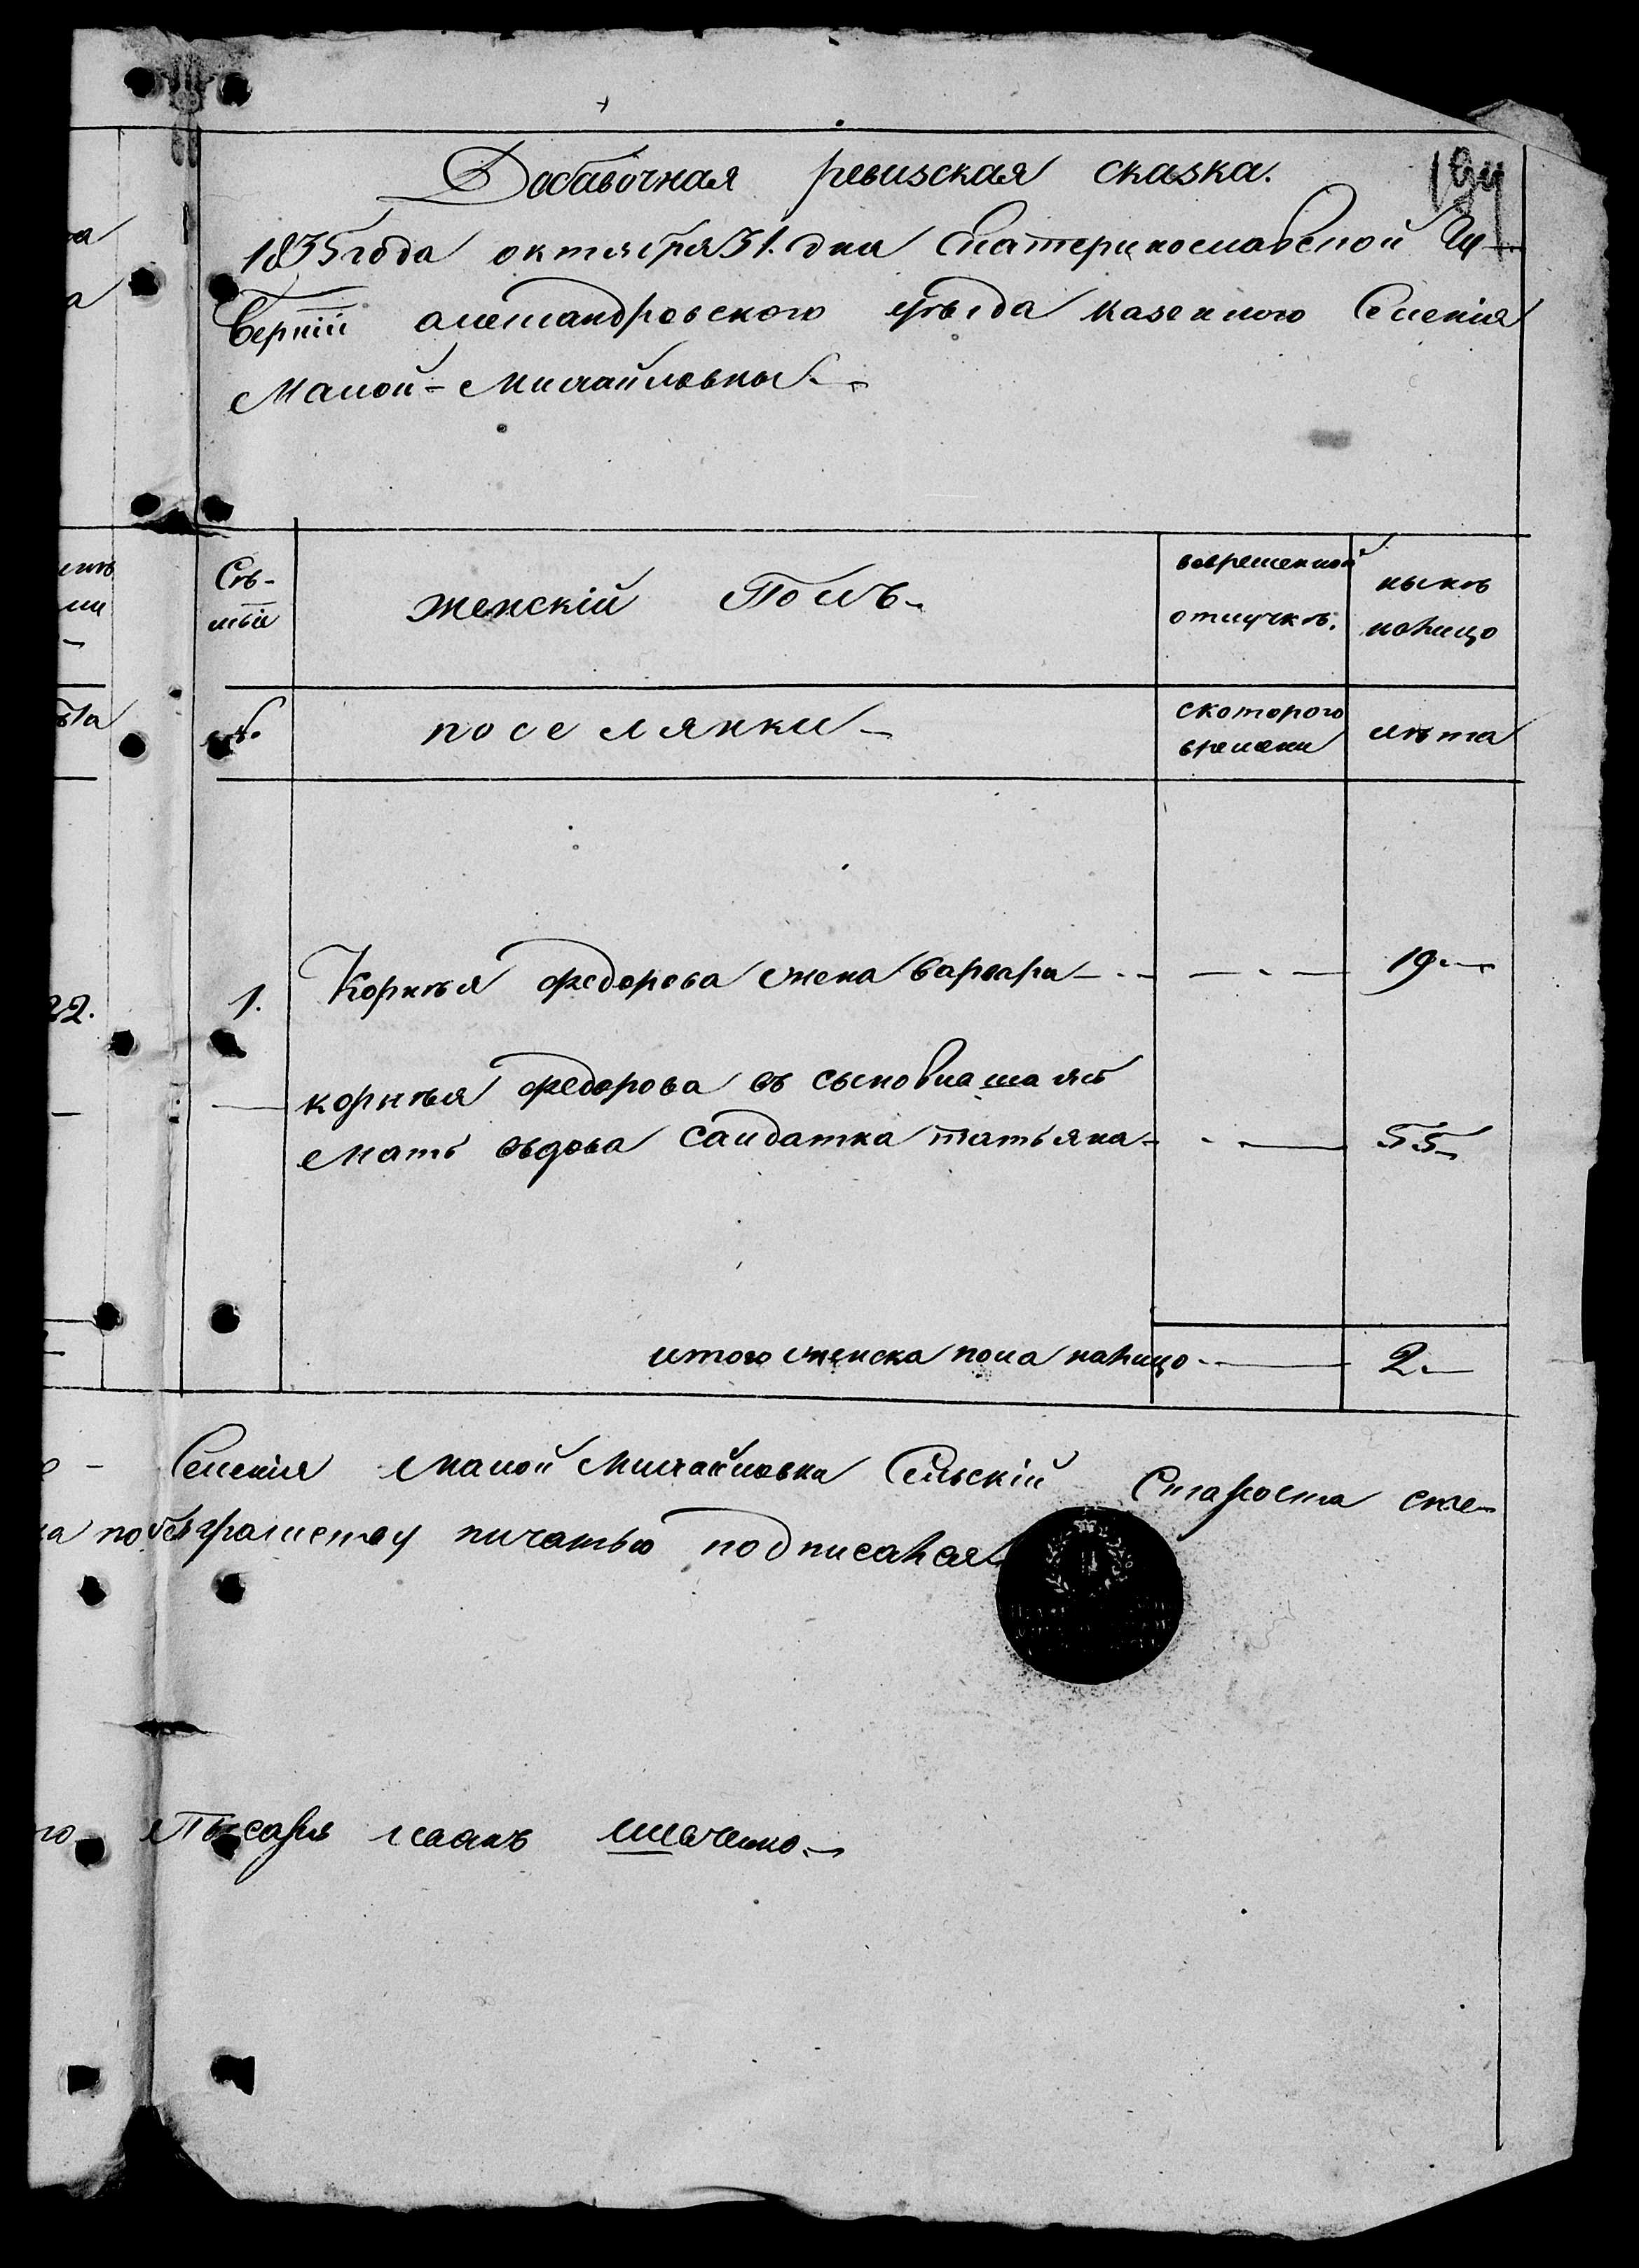 Добавочная ревизская сказка.
194
1835 года октября 31. дня Екатеринославской Гу-
берніи александровского уѣзда казенного Селенія
Малой-Михайловки
Сѣ-
мьи
женскій Полъ
вовременной
отлучкѣ.
нынѣ
налицо
№.
поселянки
скоторого
времени
лѣта
1. Корнѣя федорова жена варвара 19
корнѣя федорова въ сыновіа
мать вдова салдатка татьяна 55
итого женска пола налицо 2
Селенія Малой Михайловки Сельскій Староста
побезграмству пичатью подписался
Писарь иванъ шевченко
22.